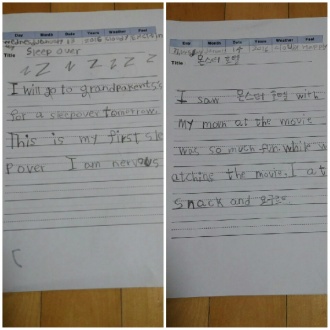 Day Month Date Years Weather Feel
Title Sleep over
Z Z Z Z Z Z
I will go to grandparents's
for a sleepover tomorrow.
This is my first sle
pover I am nervous
Day Month Date Years Weather Feel
Title 몬스터
I saw 몬스터 with
my mom at the movie
was so much fun. while w
atching the movie. I at
snack and